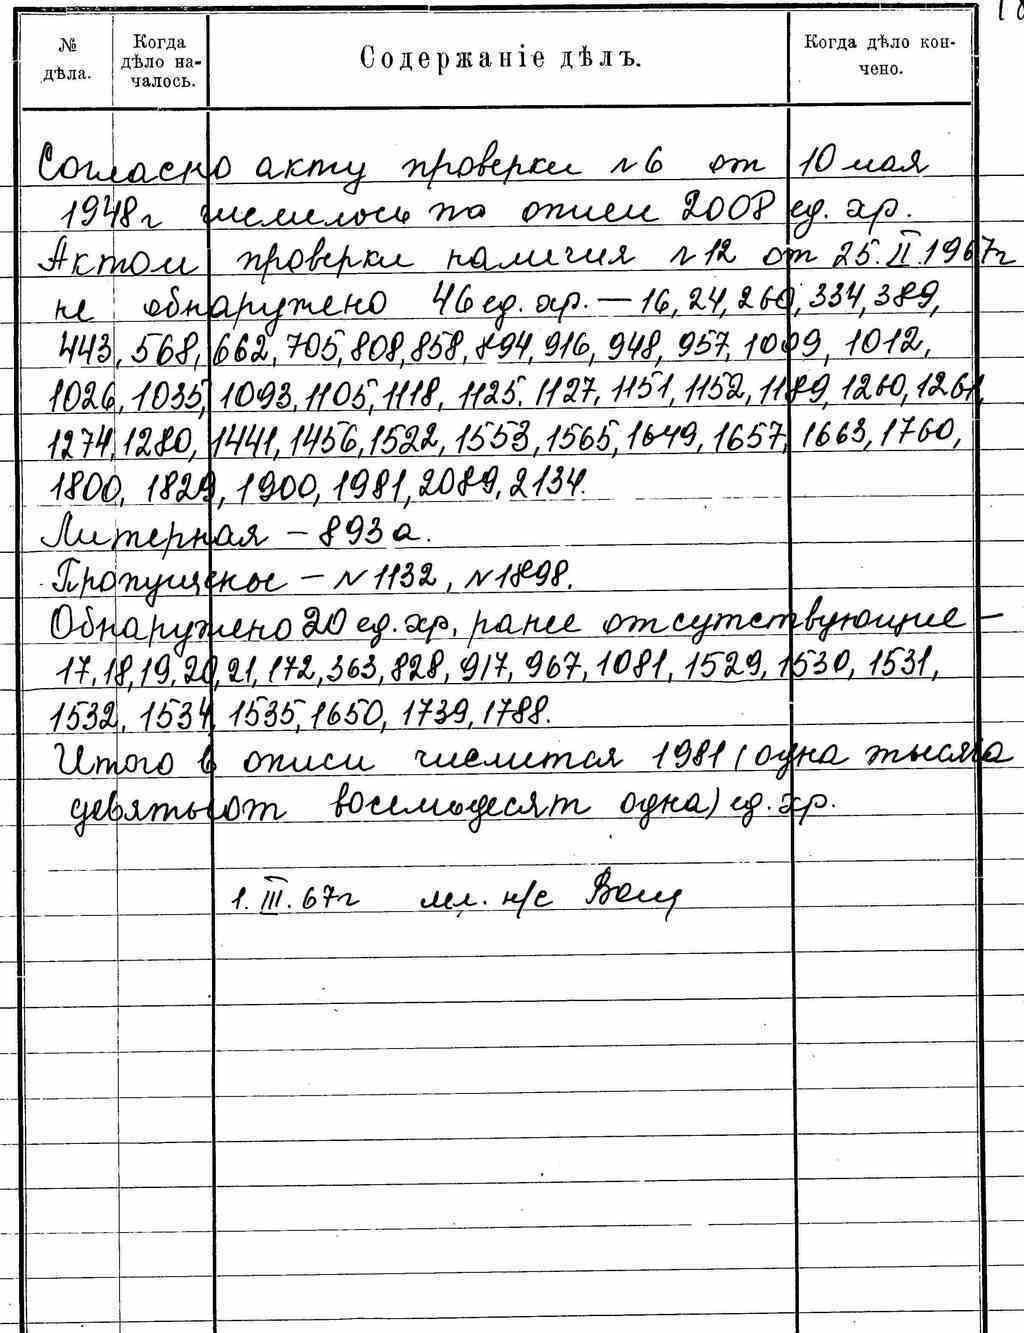 № дѣла.
Когда дѣло на-
чалось.
Содержаніе дѣлъ.
Когда дѣло кон-
чено.
Согласно акту проверки №6 от 10 мая
1948г числилось по описи 2008 ед. хр.
Актом проверки наличия №12 от 25.II.1967г
не обнаружено 46 ед. хр. – 16, 24, 260, 334, 389,
443, 568, 662, 705, 808, 858, 894, 916, 948, 957, 1009, 1012,
1026, 1035, 1093, 1105, 1118, 1125, 1127, 1151, 1152, 1189, 1260, 1261,
1274, 1280, 1441, 1456, 1522, 1553, 1565, 1649, 1657, 1663, 1760,
1800, 1829, 1900, 1981, 2089, 2134.
Литерная – 893а.
Пропущеные – №1132, №1898.
Обнаружено 20 ед. хр. ранее отсутствующие –
17, 18, 19, 20, 21, 172, 363, 828, 917, 967, 1081, 1529, 1530, 1531,
1532, 1534, 1535, 1650, 1739, 1788.
Итого в описи числится 1981 (одна тысяча
девятьсот восемьдесят одна) ед. хр.
1.III.67г мл. н/с